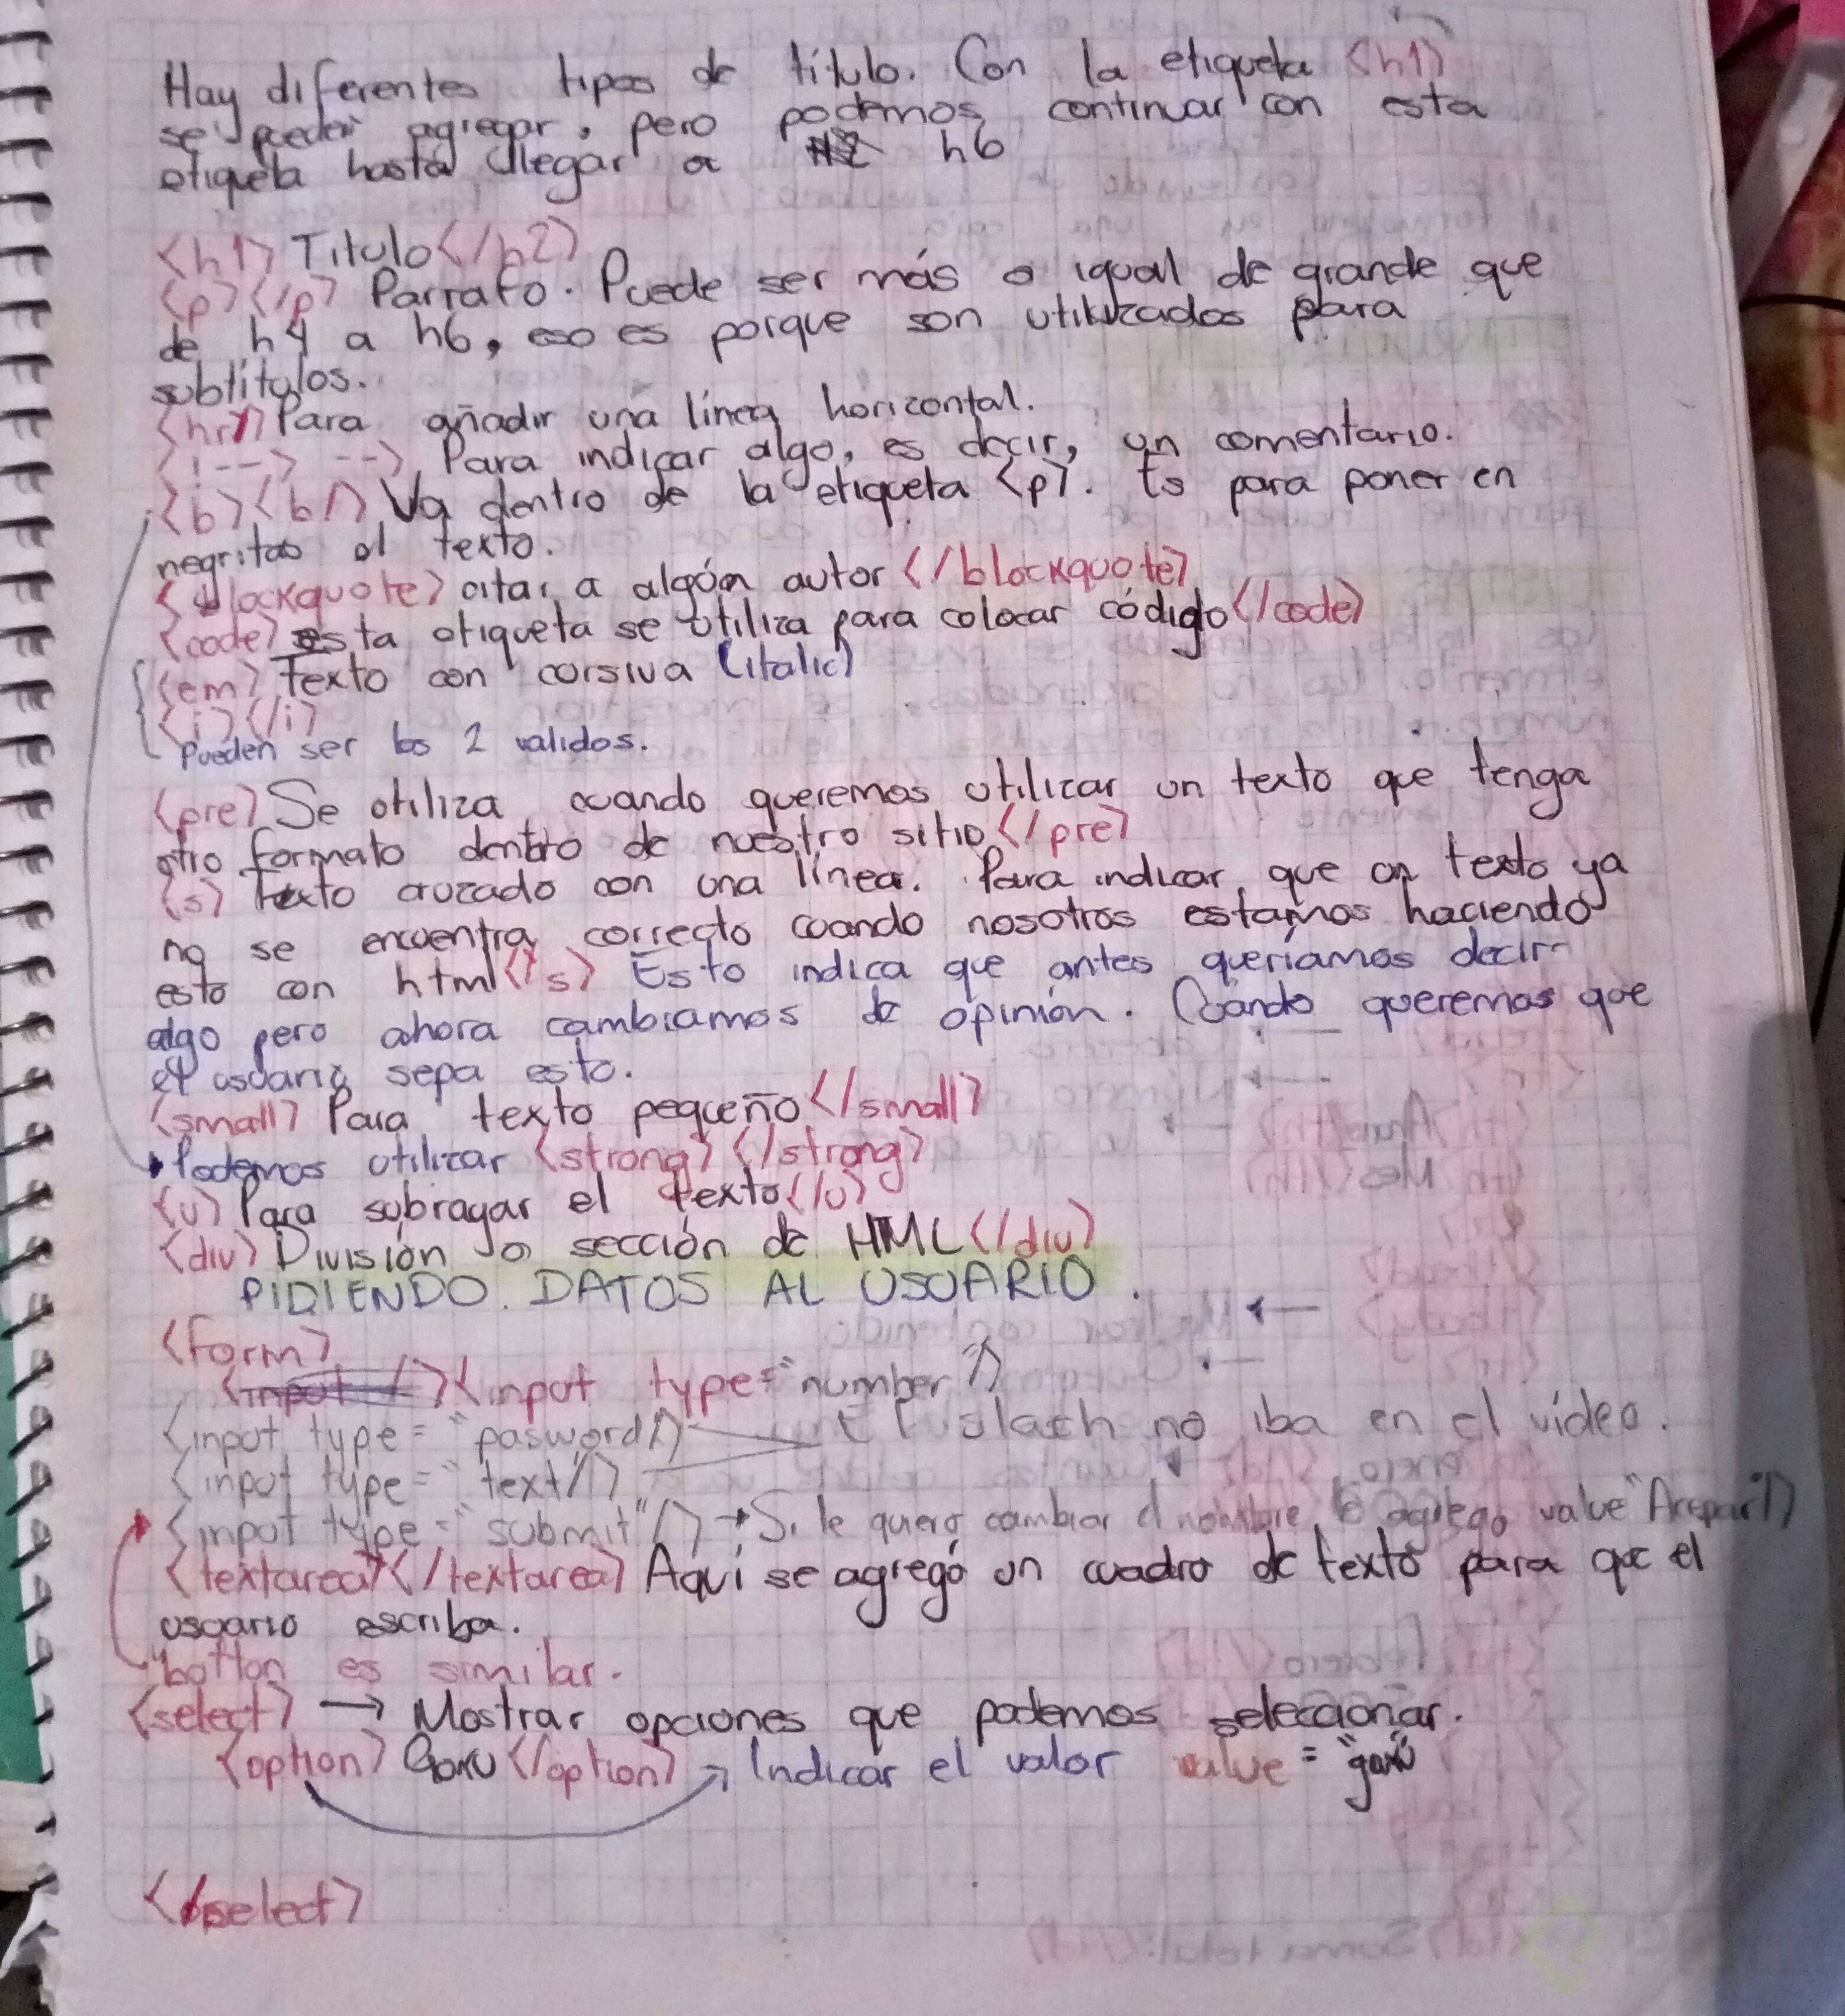 Hay diferentes tipos de título. Con la etiqueta <h1>
se pueden agregar, pero podemos continuar con esta
etiqueta hasta llegar a h6
<h1> Titulo</h2>
<p></p> Parrafo. Puede ser más o igual de grande que
de h4 a h6, eso es porque son utilizados para
subtítulos.
<hr/> Para añadir una línea horizontal.
<!--> --> Para indicar algo, es decir, un comentario.
<b><b/> Va dentro de la etiqueta <p>. Es para poner en
negritas el texto.
<blockquote> citar a algún autor </blockquote>
<code> esta etiqueta se utiliza para colocar código </code>
<em> Texto con cursiva (italic)
<i></i>
Pueden ser los 2 validos.
<pre> Se utiliza cuando queremos utilizar un texto que tenga
otro formato dentro de nuestro sitio </pre>
<s> texto cruzado con una línea. Para indicar que un texto ya
no se encuentra correcto cuando nosotros estamos haciendo
esto con html </s> Esto indica que antes queríamos decir
algo pero ahora cambiamos de opinión. Cuando queremos que
el usuario sepa esto.
<small> Para texto pequeño </small>
Podemos utilizar <strong></strong>
<u> Para subrayar el texto </u>
<div> División o sección de HTML </div>
PIDIENDO DATOS AL USUARIO.
<form>
<input /><input type="number"/>
<input type="pasword/> El slach no iba en el vídeo.
<input type="text/>
<input type="submit"/> → Si le quiero cambiar el nombre le agrego value "Arepar"/>
<textarea></textarea> Aquí se agregó un cuadro de texto para que el
usuario escriba.
"botton es similar.
<select> → Mostrar opciones que podemos seleccionar.
<option> Garu </option> → Indicar el valor value="garu"
</select>